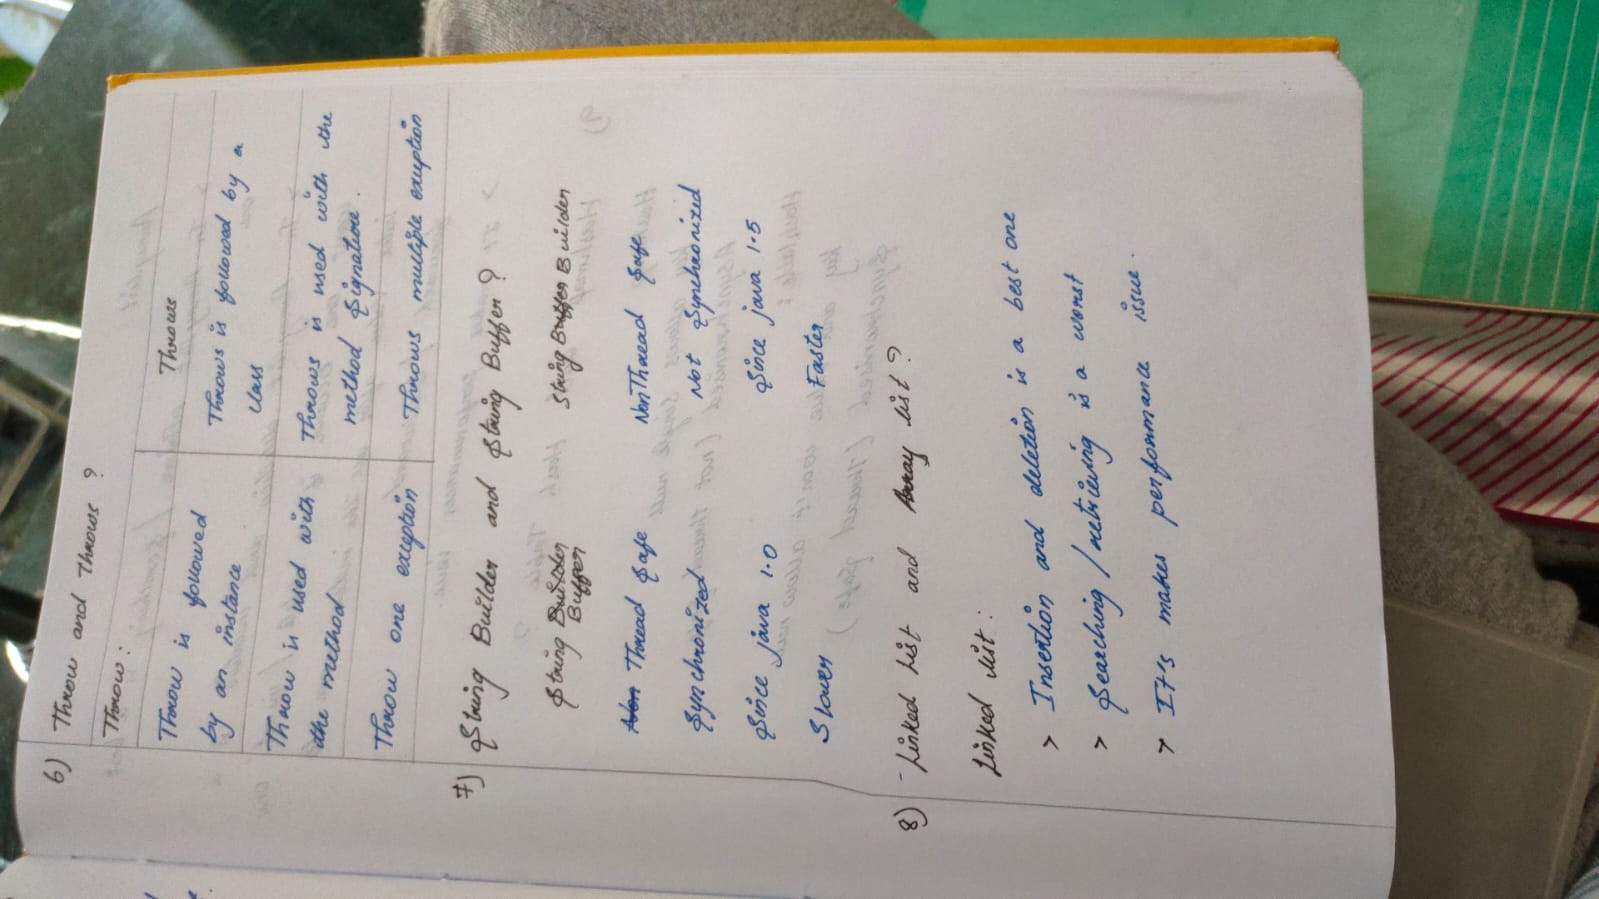 6) Throw and throws ?
Throw :
Throws
Throw is followed
by an instance
Throws is followed by a
class
Throw is used with
the method
Throws is used with the
method signature.
Throw one exception
Throws multiple exception
7) String Builder and String Buffer ?
String Builder
Buffer
String Buffer Builder
Non Thread safe
Non Thread safe
Synchronized
Not synchronized
Since java 1.0
Since java 1.5
Slower
Faster
8) - Linked list and Array list ?
Linked list :
> Insertion and deletion is a best one
> Searching / retrieving is a worst
> It's makes performance issue.